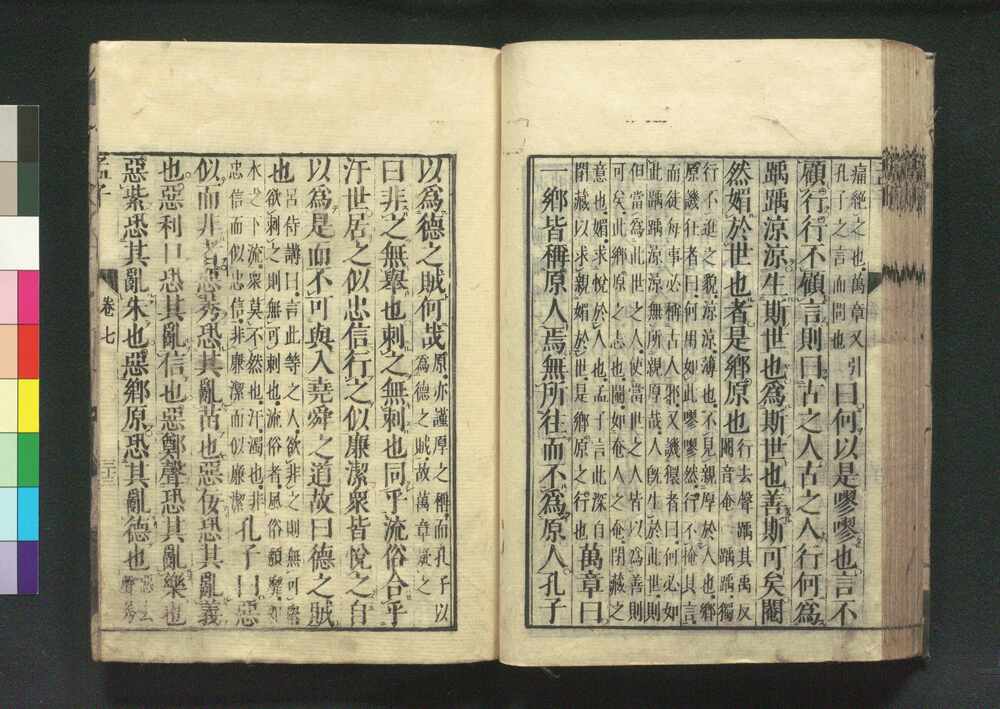 痛絶之也萬章又引
孔子之言而問也
曰何以是嘐嘐也言不
顧行行不顧言則曰古之人古之人行何爲
踽踽涼涼生斯世也爲斯世也善斯可矣閹
然媚於世也者是鄕原也
行去聲踽其禹反
閹音奄 踽踽獨
行不進之貌涼涼薄也不見親厚於人也鄕
原譏狂者曰何用如此嘐嘐然行不掩其言
而徒每事必稱古人邪又譏狷者曰何必如
此踽踽涼涼無所親厚哉人既生於此世則
但當爲此世之人使當世之人皆以爲善則
可矣此鄕原之志也閹如奄人之奄閉藏之
意也媚求悅於人也孟子言此深自
閉藏以求親媚於世是鄕原之行也
萬章曰
一鄕皆稱原人焉無所往而不爲原人孔子
以爲德之賊何哉
原亦謹厚之稱而孔子以
爲德之賊故萬章疑之
曰非之無舉也刺之無刺也同乎流俗合乎
汙世居之似忠信行之似廉潔衆皆悅之自
以爲是而不可與入堯舜之道故曰德之賊
也
呂侍講曰言此等之人欲非之則無可舉
欲刺之則無可刺也流俗者風俗頹靡如
水之下流衆莫不然也汙濁也非
忠信而似忠信非廉潔而似廉潔
孔子曰惡
似而非者惡莠恐其亂苗也惡佞恐其亂義
也惡利口恐其亂信也惡鄭聲恐其亂樂也
惡紫恐其亂朱也惡鄕原恐其亂德也
惡去
聲莠
孟子
卷七
三十三